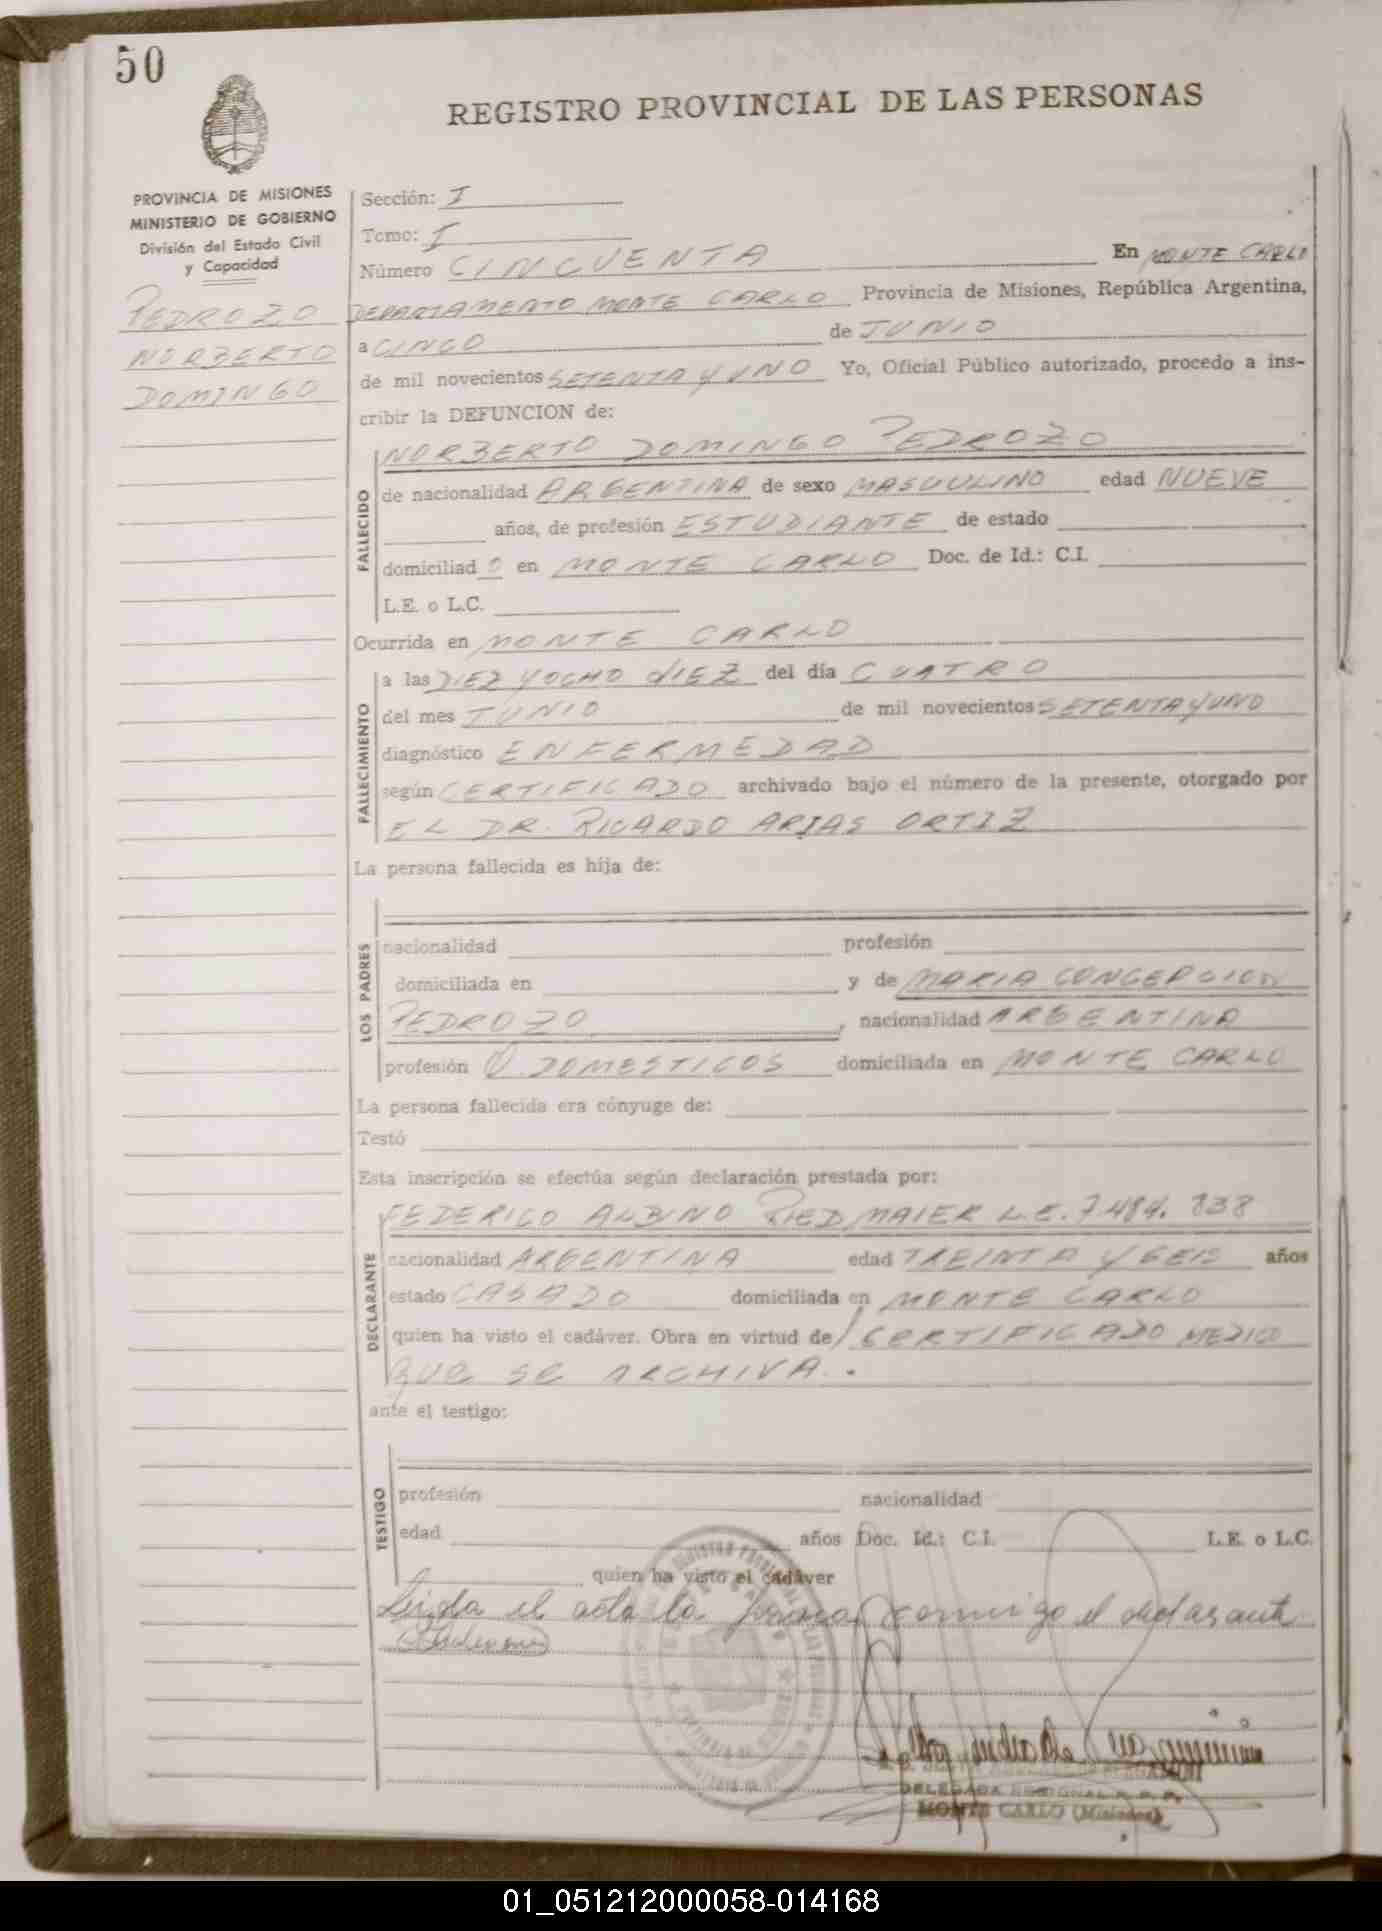 50
REGISTRO PROVINCIAL DE LAS PERSONAS
PROVINCIA DE MISIONES
MINISTERIO DE GOBIERNO
División del Estado Civil
y Capacidad
PEDROZO
NORBERTO
DOMINGO
Sección: I
Tomo: I
Número CINCUENTA En MONTE CARLO
DEPARTAMENTO MONTE CARLO Provincia de Misiones, República Argentina,
a CINCO de JUNIO
de mil novecientos SETENTA Y UNO Yo, Oficial Público autorizado, procedo a ins-
cribir la DEFUNCION de:
NORBERTO DOMINGO PEDROZO
FALLECIDO
de nacionalidad ARGENTINA de sexo MASCULINO edad NUEVE
años, de profesión ESTUDIANTE de estado
domiciliad O en MONTE CARLO Doc. de Id.: C.I.
L.E. o L.C.
Ocurrida en MONTE CARLO
FALLECIMIENTO
a las DIEZ Y OCHO DIEZ del día CUATRO
del mes JUNIO de mil novecientos SETENTA Y UNO
diagnóstico ENFERMEDAD
según CERTIFICADO archivado bajo el número de la presente, otorgado por
EL DR. RICARDO ARIAS ORTIZ
La persona fallecida es hija de:
LOS PADRES
nacionalidad profesión
domiciliada en y de MARIA CONCEPCION
PEDROZO, nacionalidad ARGENTINA
profesión Q. DOMESTICOS domiciliada en MONTE CARLO
La persona fallecida era cónyuge de:
Testó
Esta inscripción se efectúa según declaración prestada por:
DECLARANTE
FEDERICO ALBINO RIEDMAIER L.E. 7.484.838
nacionalidad ARGENTINA edad TREINTA Y SEIS años
estado CASADO domiciliada en MONTE CARLO
quien ha visto el cadáver. Obra en virtud de CERTIFICADO MEDICO
QUE SE ARCHIVA.
ante el testigo:
TESTIGO
profesión nacionalidad
edad años Doc. Id.: C.I. L.E. o L.C.
quien ha visto el cadáver
Leida el acta la firma conmigo el declarante
DELEGADA REGIONAL R. P. P.
MONTE CARLO (Misiones)
01_051212000058-014168